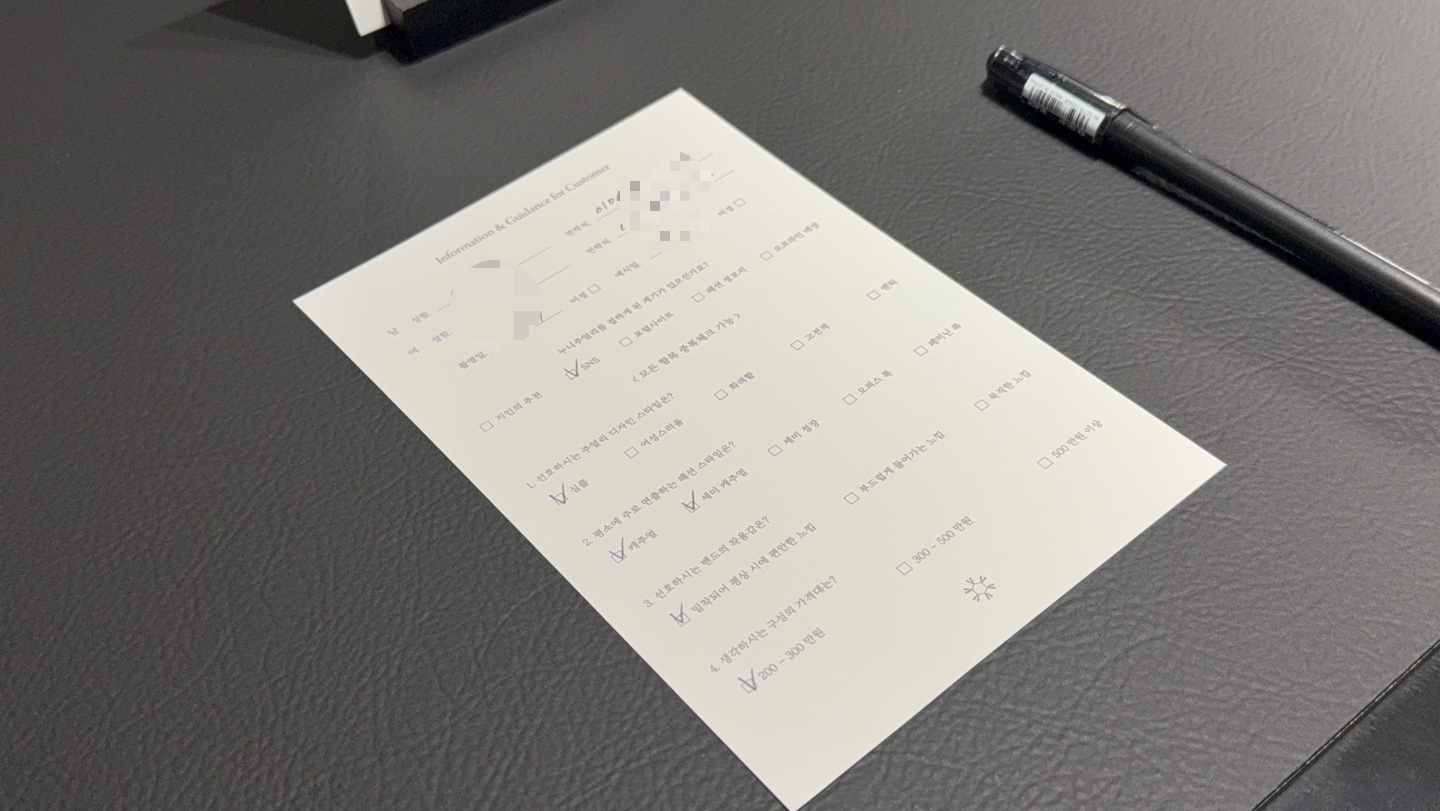 Information & Guidance for Customer
남 성함 연락처 010
여 성함 연락처
촬영일 미정 □ 예식일 미정 □
누니주얼리를 접하게 된 계기가 있으신가요?
□ 지인의 추천 ☑ SNS □ 포털사이트 □ 패션 정보지 □ 오프라인 매장
< 모든 항목 중복체크 가능 >
1. 선호하시는 주얼리 디자인 스타일은?
☑ 심플 □ 여성스러움 □ 화려함 □ 고전적 □ 앤틱
2. 평소에 주로 연출하는 패션 스타일은?
☑ 캐주얼 ☑ 세미 캐주얼 □ 세미 정장 □ 오피스 룩 □ 페미닌 룩
3. 선호하시는 밴드의 착용감은?
☑ 밀착되어 평상 시에 편안한 느낌 □ 부드럽게 들어가는 느낌 □ 묵직한 느낌
4. 생각하시는 구성의 가격대는?
☑ 200 – 300 만원 □ 300 – 500 만원 □ 500 만원 이상